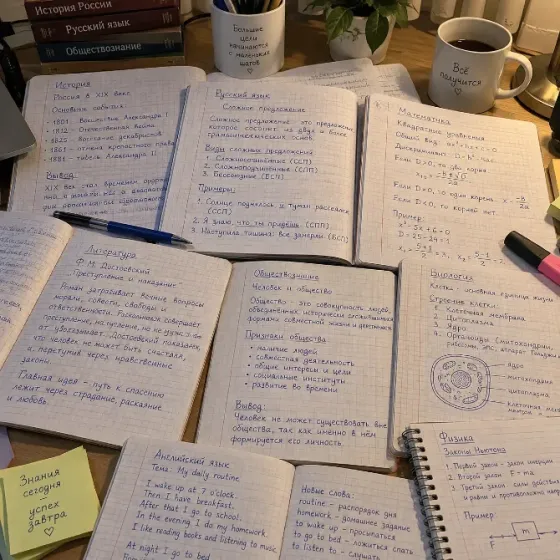 История России
Русский язык
Обществознание
Большие
цели
начинаются
с маленьких
шагов
Всё
получится
История
Россия в XIX веке
Основные события:
1812 - Отечественная война
1825 - восстание декабристов
1861 - отмена крепостного права
1881 - гибель Александра II
Вывод:
XIX век стал временем
Русский язык
Сложное предложение
Сложное предложение - это предложение,
которое состоит из двух и более
грамматических основ.
Виды сложных предложений
1. Сложносочинённые (ССП)
2. Сложноподчинённые (СПП)
3. Бессоюзные (БСП)
Примеры:
1. Солнце поднялось и туман рассеялся
(ССП)
2. Я знаю, что ты придёшь. (СПП)
3. Наступила тишина: все замерли. (БСП)
Математика
Квадратные уравнения
Общий вид: ax² + bx + c = 0
Дискриминант:
Если D>0, то два корня
Если D=0, то один корень
Если D<0, то корней нет.
Пример:
x² - 5x + 6 = 0
D = 25 - 24 = 1
Литература
Ф. М. Достоевский
"Преступление и наказание"
Роман затрагивает вечные вопросы
морали, совести, свободы и
ответственности. Раскольников совершает
преступление, но
от Достоевский показывает,
что человек не может быть счастлив,
переступив через нравственные
законы.
Главная идея - путь к спасению
лежит через страдание, раскаяние
и любовь.
Обществознание
Человек и общество
Общество - это совокупность людей,
объединённых исторически сложившимися
формами совместной жизни и деятельности.
Признаки общества
• наличие людей
• совместная деятельность
• общие интересы и цели
• социальные институты
• развитие во времени
Вывод:
Человек не может существовать вне
общества, так как именно в нём
формируется его личность.
Биология
Клетка - основная единица жизни
Строение клетки:
1. Клеточная мембрана
2. Цитоплазма
3. Ядро
4. Органоиды (митохондрии,
рибосомы, ЭПС, аппарат Гольджи
ядро
митохондрия
цитоплазма
клеточная мембрана
Английский язык
Тема: My daily routine
I wake up at 7 o'clock.
Then I have breakfast.
After that I go to school.
In the evening I do my homework.
I like reading books and listening to music.
At night I go to bed
Новые слова:
routine - распорядок дня
homework - домашнее задание
to wake up - просыпаться
to go to bed - ложиться спать
to listen to - слушать
Физика
Законы Ньютона
1. Первый закон - закон инерции
2. Второй закон F = ma
3. Третий закон: силы действия
и равны и противоположно
Пример:
m
Знания
сегодня
–
успех
завтра